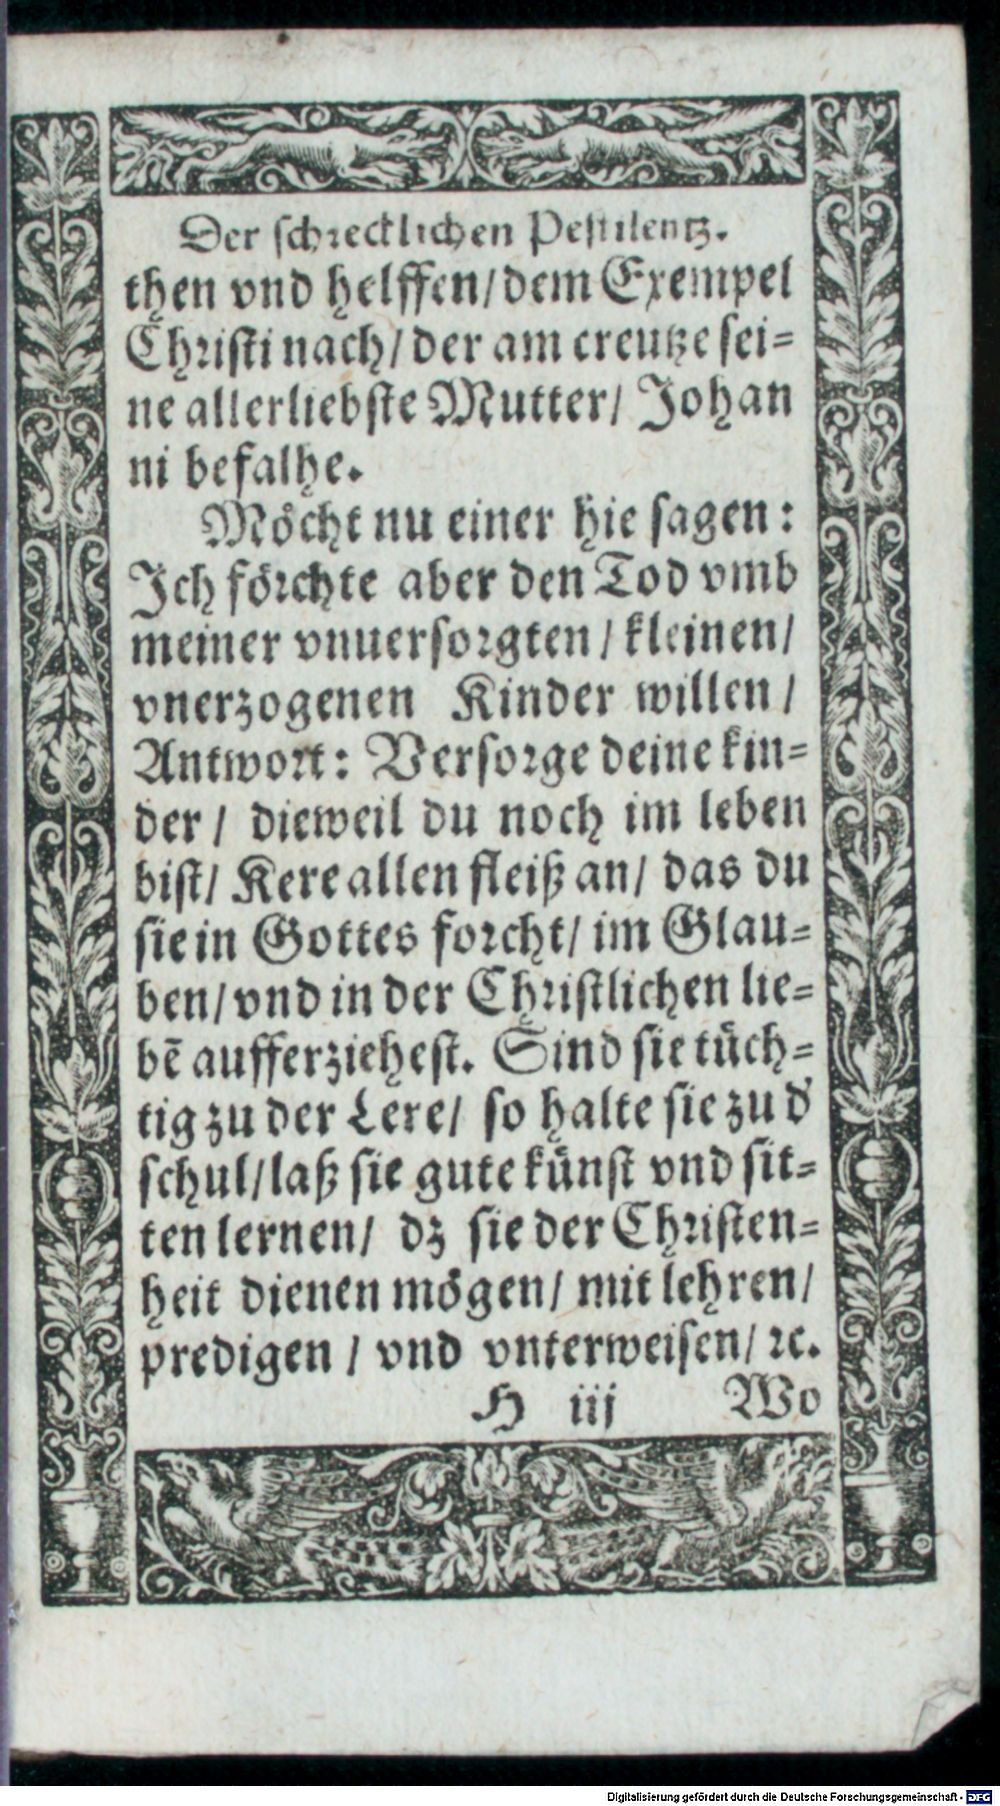 Der schrecklichen Pestilentz.
then vnd helffen/dem Exempel
Christi nach/ der am creutze sei=
ne allerliebste Mutter/ Johan
ni befalhe.
Möcht nu einer hie sagen:
Ich förchte aber den Tod vmb
meiner vnuersorgten/ kleinen/
vnerzogenen Kinder willen/
Antwort: Versorge deine kin=
der/ dieweil du noch im leben
bist/ Kere allen fleiß an/ das du
sie in Gottes forcht/ im Glau=
ben/vnd in der Christlichen lie=
bē aufferziehest. Sind sie tüch=
tig zu der Lere/ so halte sie zu d'
schul/laß sie gute künst vnd sit=
ten lernen/ dz sie der Christen=
heit dienen mögen/ mit lehren/
predigen/ vnd vnterweisen/ ꝛc.
H iij Wo
Digitalisierung gefördert durch die Deutsche Forschungsgemeinschaft - DFG